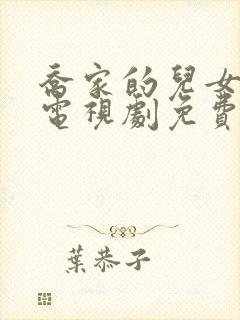 喬家的兒女
電視劇免費
葉恭子